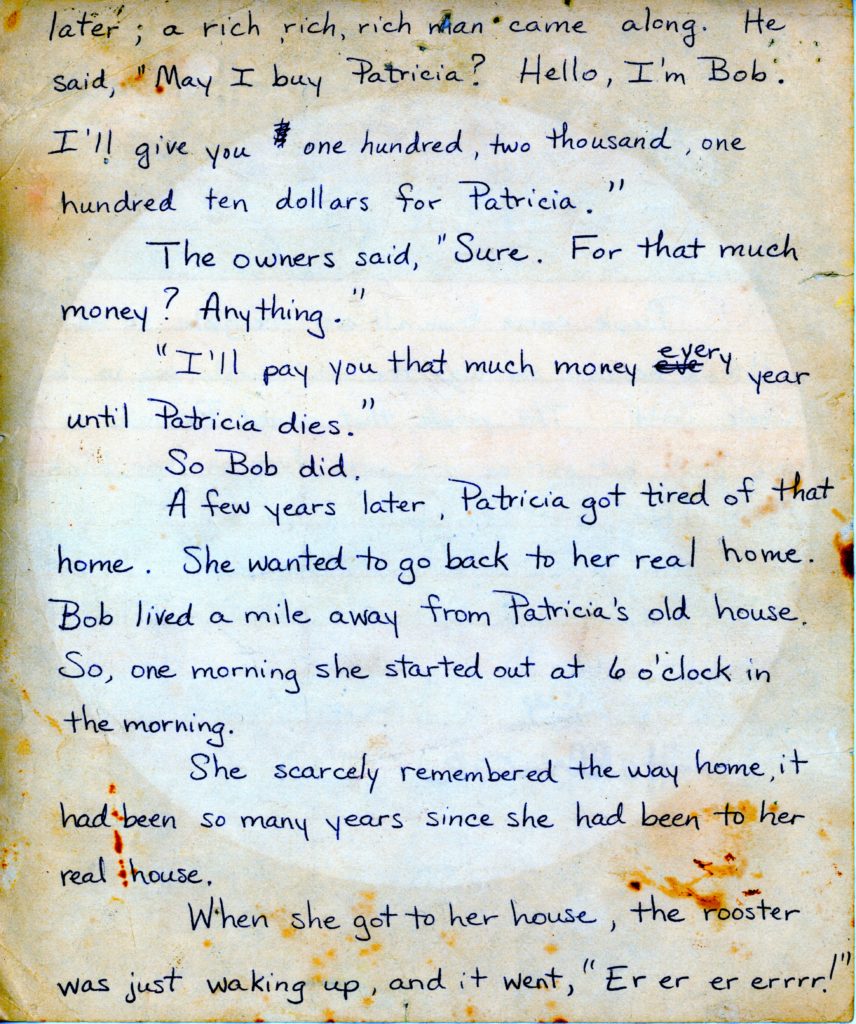 later; a rich, rich, rich man came along. He
said, "May I buy Patricia? Hello, I'm Bob.
I'll give you one hundred, two thousand, one
hundred ten dollars for Patricia."
The owners said, "Sure. For that much
money? Anything."
"I'll pay you that much money every year
until Patricia dies."
So Bob did.
A few years later, Patricia got tired of that
home. She wanted to go back to her real home.
Bob lived a mile away from Patricia's old house.
So, one morning she started out at 6 o'clock in
the morning.
She scarcely remembered the way home, it
had been so many years since she had been to her
real house.
When she got to her house, the rooster
was just waking up, and it went, "Er er er errrr!"